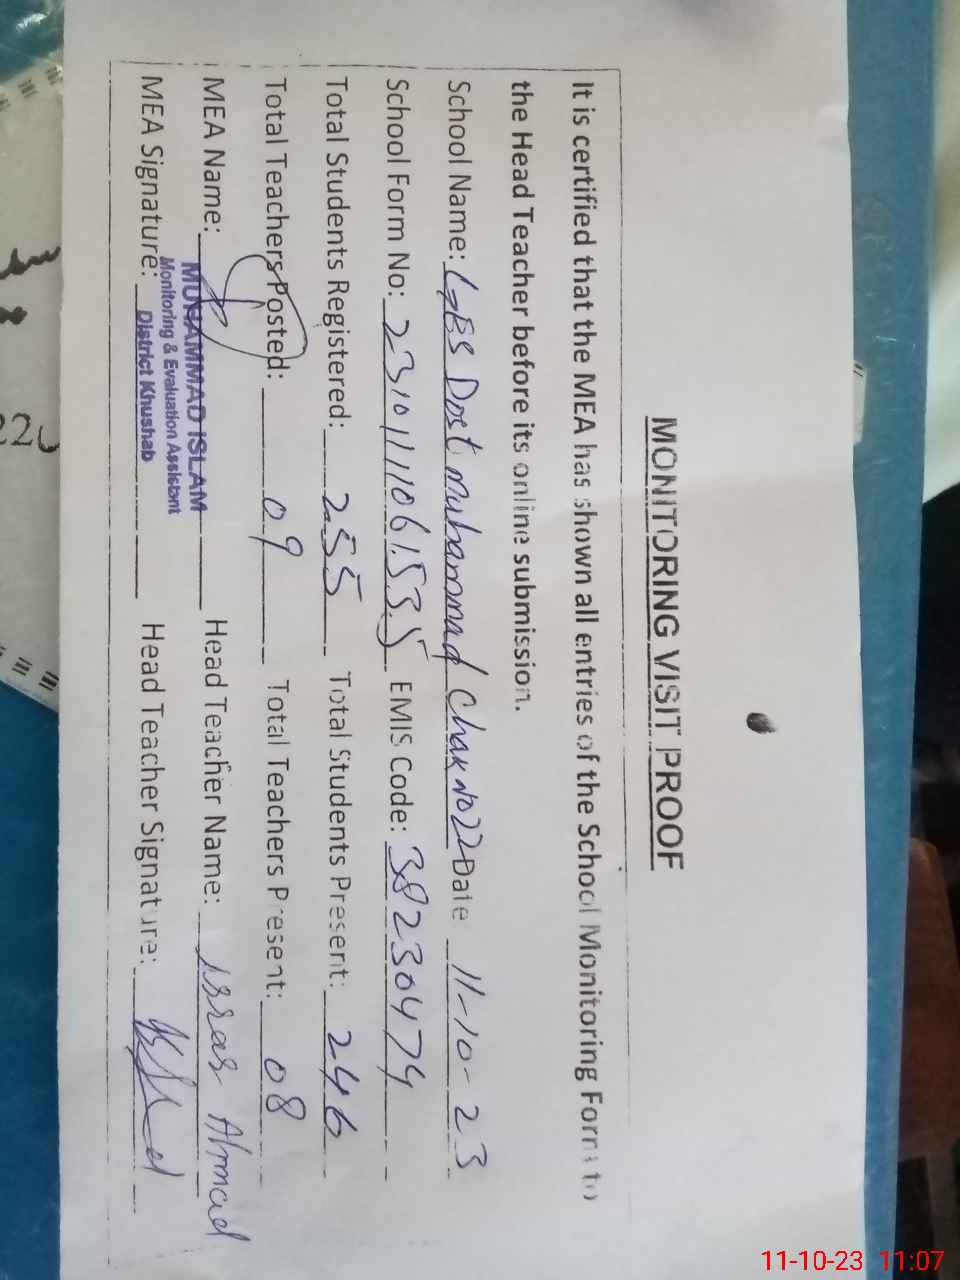 MONITORING VISIT PROOF
It is certified that the MEA has shown all entries of the School Monitoring Form to
the Head Teacher before its online submission.
School Name: GBS Dost Muhammad Chak No 22 Date 11-10-23
School Form No: 2310111061535 EMIS Code: 38230474
Total Students Registered: 255 Total Students Present: 246
Total Teachers Posted: 09 Total Teachers Present: 08
MEA Name: Head Teacher Name: Israr Ahmad
MUHAMMAD ISLAM
Monitoring & Evaluation Assistant
District Khushab
MEA Signature: Head Teacher Signature:
11-10-23 11:07